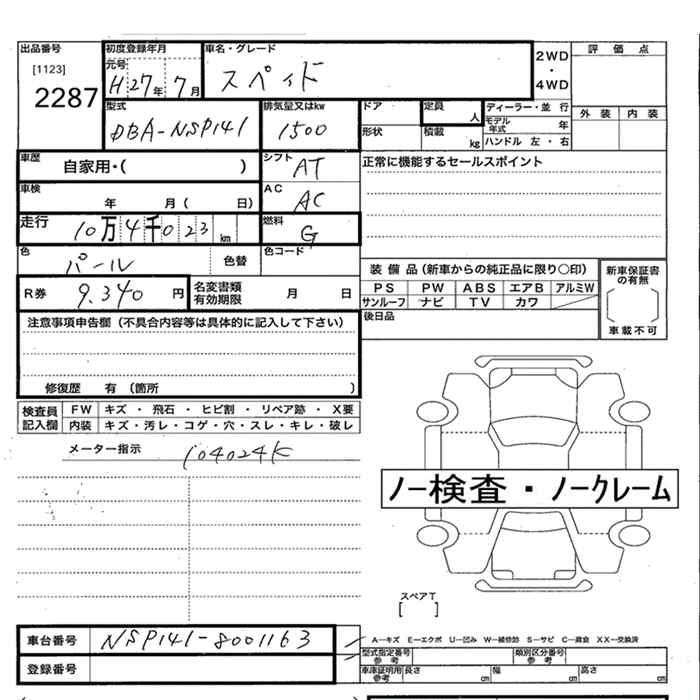 出品番号 初度登録年月 車名・グレード 評価点
[1123] 元号 2WD
2287 H27年 7月 スペイド ・
4WD
外装 内装
型式 排気量又はkw ドア 定員 人 ディーラー・並行
DBA-NSP141 1500 形状 積載 kg モデル年式 年
ハンドル 左・右
車歴 自家用・( ) シフト AT 正常に機能するセールスポイント
車検 年 月( 日) AC AC
走行 10万4千023 km 燃料 G
色 パール 色替 色コード
装備品(新車からの純正品に限り○印) 新車保証書の有無
R券 9.340 円 名変書類有効期限 月 日 PS PW ABS エアB アルミW
サンルーフ ナビ TV カワ 車載不可
後日品
注意事項申告欄(不具合内容等は具体的に記入して下さい)
修復歴 有(箇所 )
検査員記入欄 FW キズ・飛石・ヒビ割・リペア跡・X要
内装 キズ・汚レ・コゲ・穴・スレ・キレ・破レ
メーター指示 104024K
ノー検査・ノークレーム
スペアT
[ ]
車台番号 NSP141-8001163
A-キズ E-エクボ U-凹み W-補修跡 S-サビ C-腐食 XX-交換済
型式指定番号 参考 類別区分番号 参考
登録番号 車庫証明用参考 長さ cm 幅 cm 高さ cm